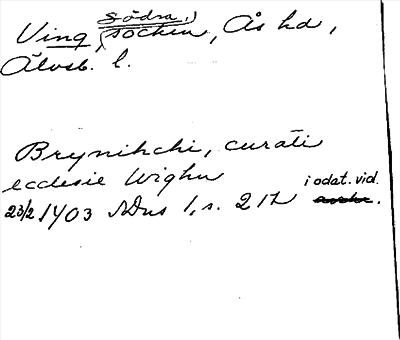 Södra,
Ving (socken, Ås hd,
Älvsb. l.
Brynikchi, curati
ecclesie Wighu
i odat. vid.
23/2 1403 SDns 1, s. 212